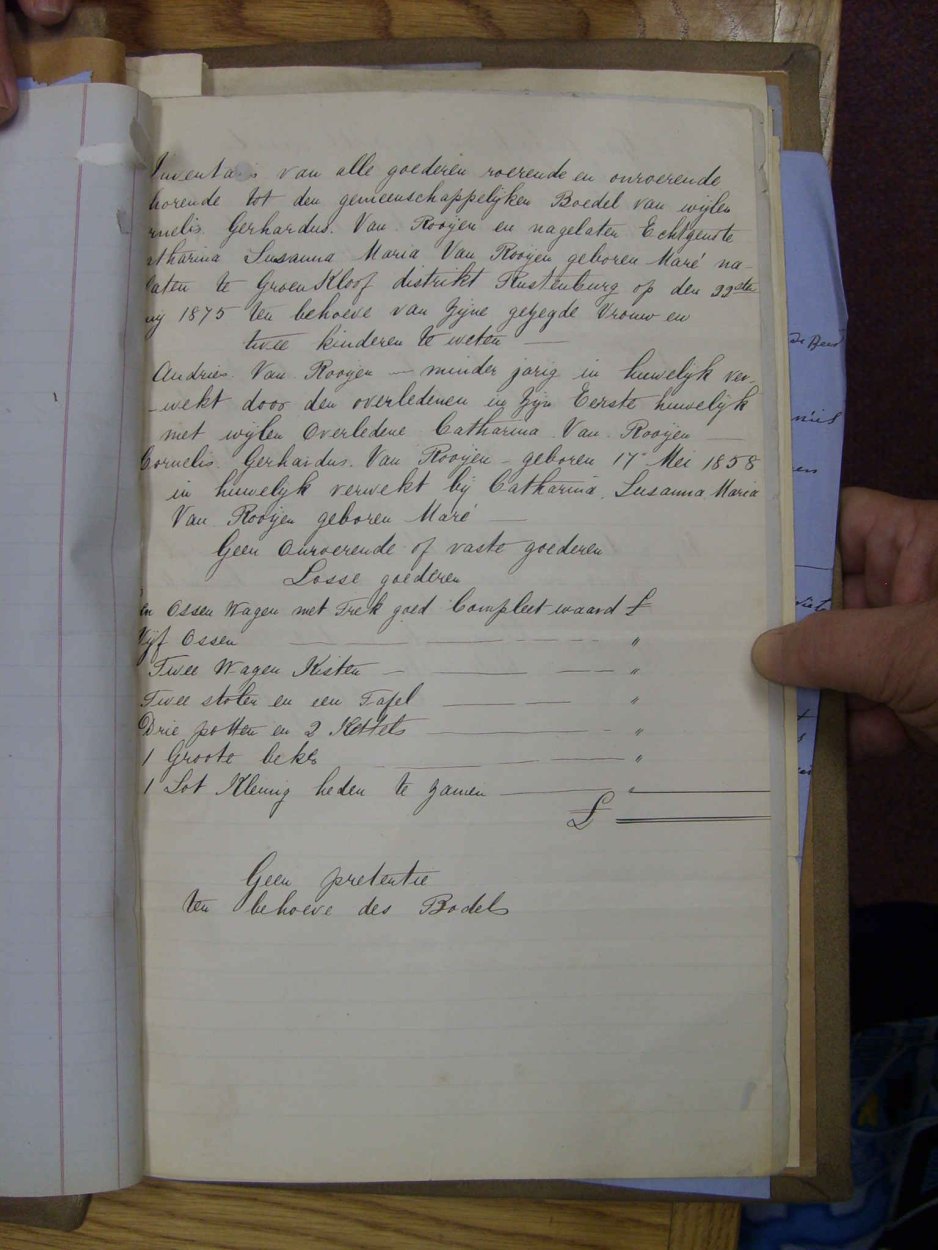 Inventaris van alle goederen roerende en onroerende
horende tot den gemeenschappelijken Boedel van wijlen
rnelis. Gerhardus. Van. Rooyen en nagelaten Echtgenote
atharina Susanna Maria Van Rooyen geboren Maré na-
laten te GroenKloof distrikt Rustenburg op den 22ste
1875 ten behoeve van Zyne gezegde Vrouw en
twee kinderen te weten —
Andries. Van. Rooyen — minder jarig in huwelyk ver-
-wekt door den overledenen in Zyn Eerste huwelyk
met wylen Overledene Catharina. Van. Rooyen —
Cornelis. Gerhardus. Van Rooyen - geboren 17 Mei 1858
in huwelyk verwekt bij Catharina. Susanna Maria
Van. Rooyen geboren Maré —
Geen Onroerende of vaste goederen
Losse goederen
en Ossen Wagen met Trek goed Compleet waard £
Vyf Ossen — "
Twee Wagen Kisten — "
Twee stolen en een Tafel — "
Drie potten en 2 Kettels — "
1 Groote — "
1 Lot Kleinig heden te zamen — "
£
Geen pretentie
ten behoeve des Bodels